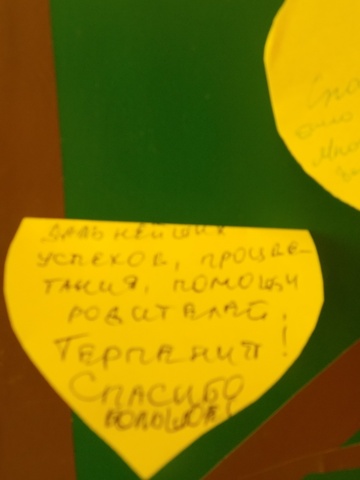 дальнейших
успехов, процве-
тания, помощи
родителей,
Терпения!
Спасибо
большое!
Спа